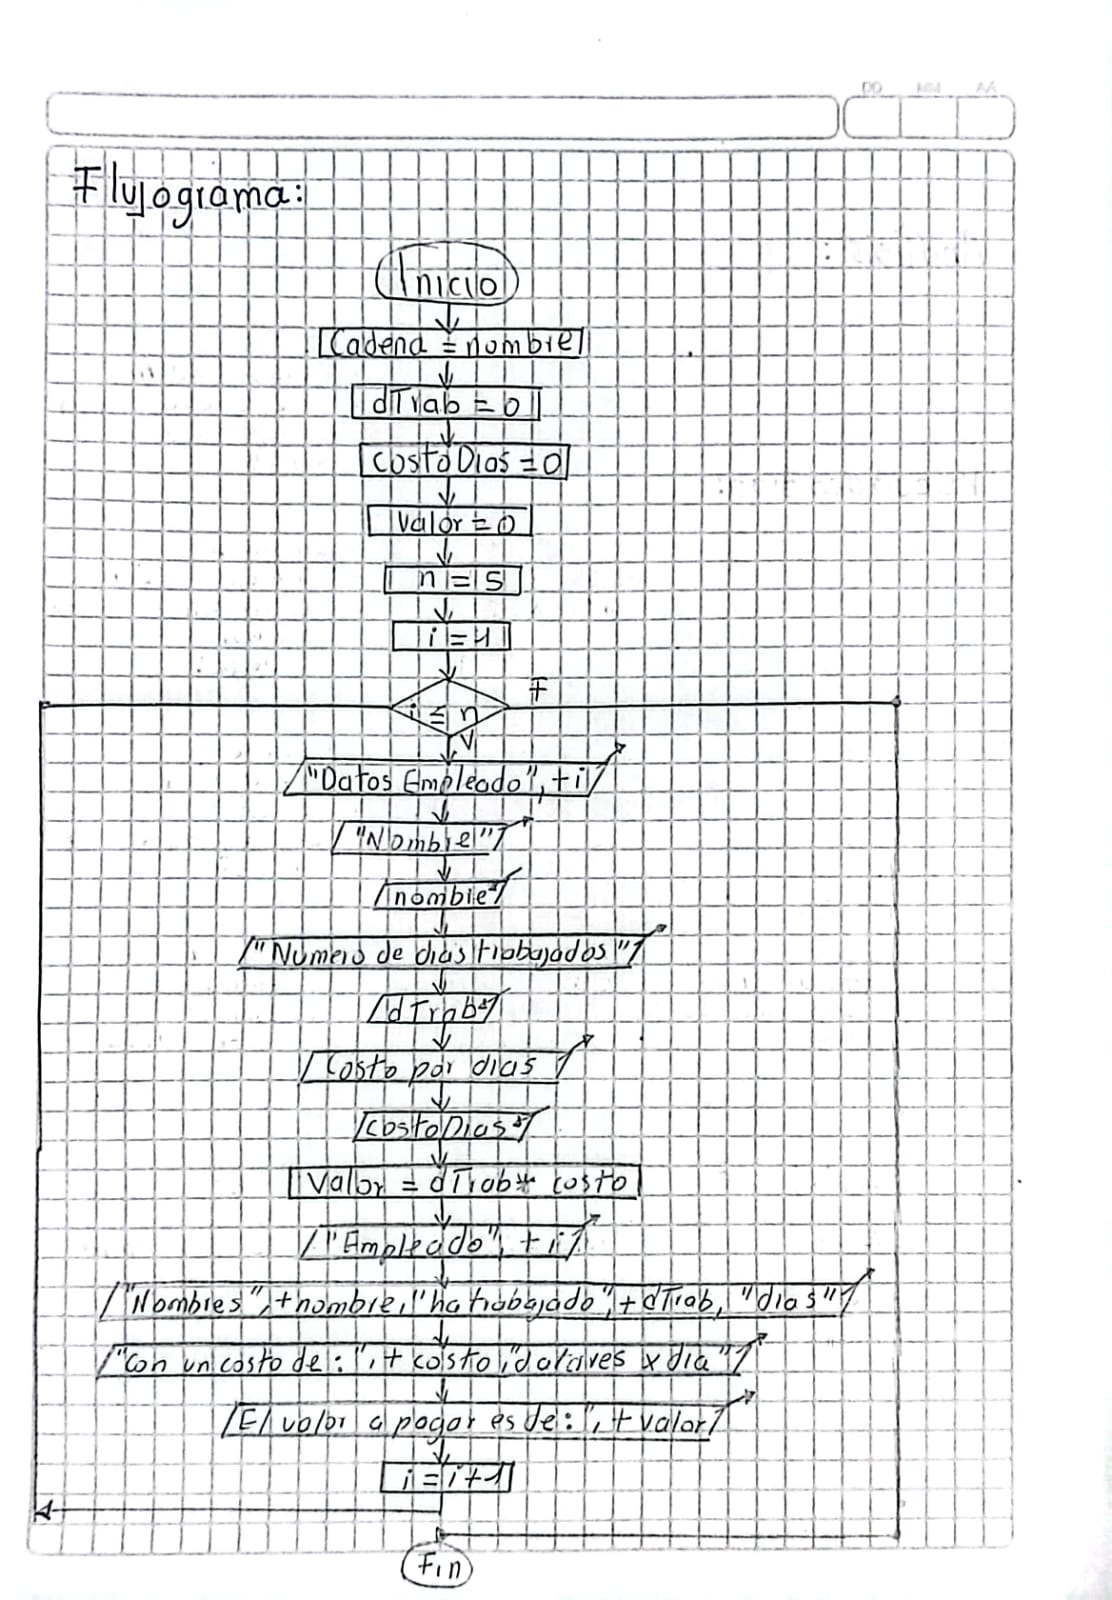 AA MM DD
Flujograma:
Inicio
Cadena = nombre
dTrab = 0
costoDias = 0
Valor = 0
n = 5
i = 1
F
i ≤ n
V
"Datos Empleado", + i
"Nombre"
nombre
"Numero de dias trabajados"
dTrab
Costo por dias
costoDias
Valor = dTrab * costo
"Empleado", + i
"Nombres", + nombre, "ha trabajado", + dTrab, "dias"
"Con un costo de:", + costo, "dolares x dia"
El valor a pagar es de:", + valor
i = i + 1
Fin